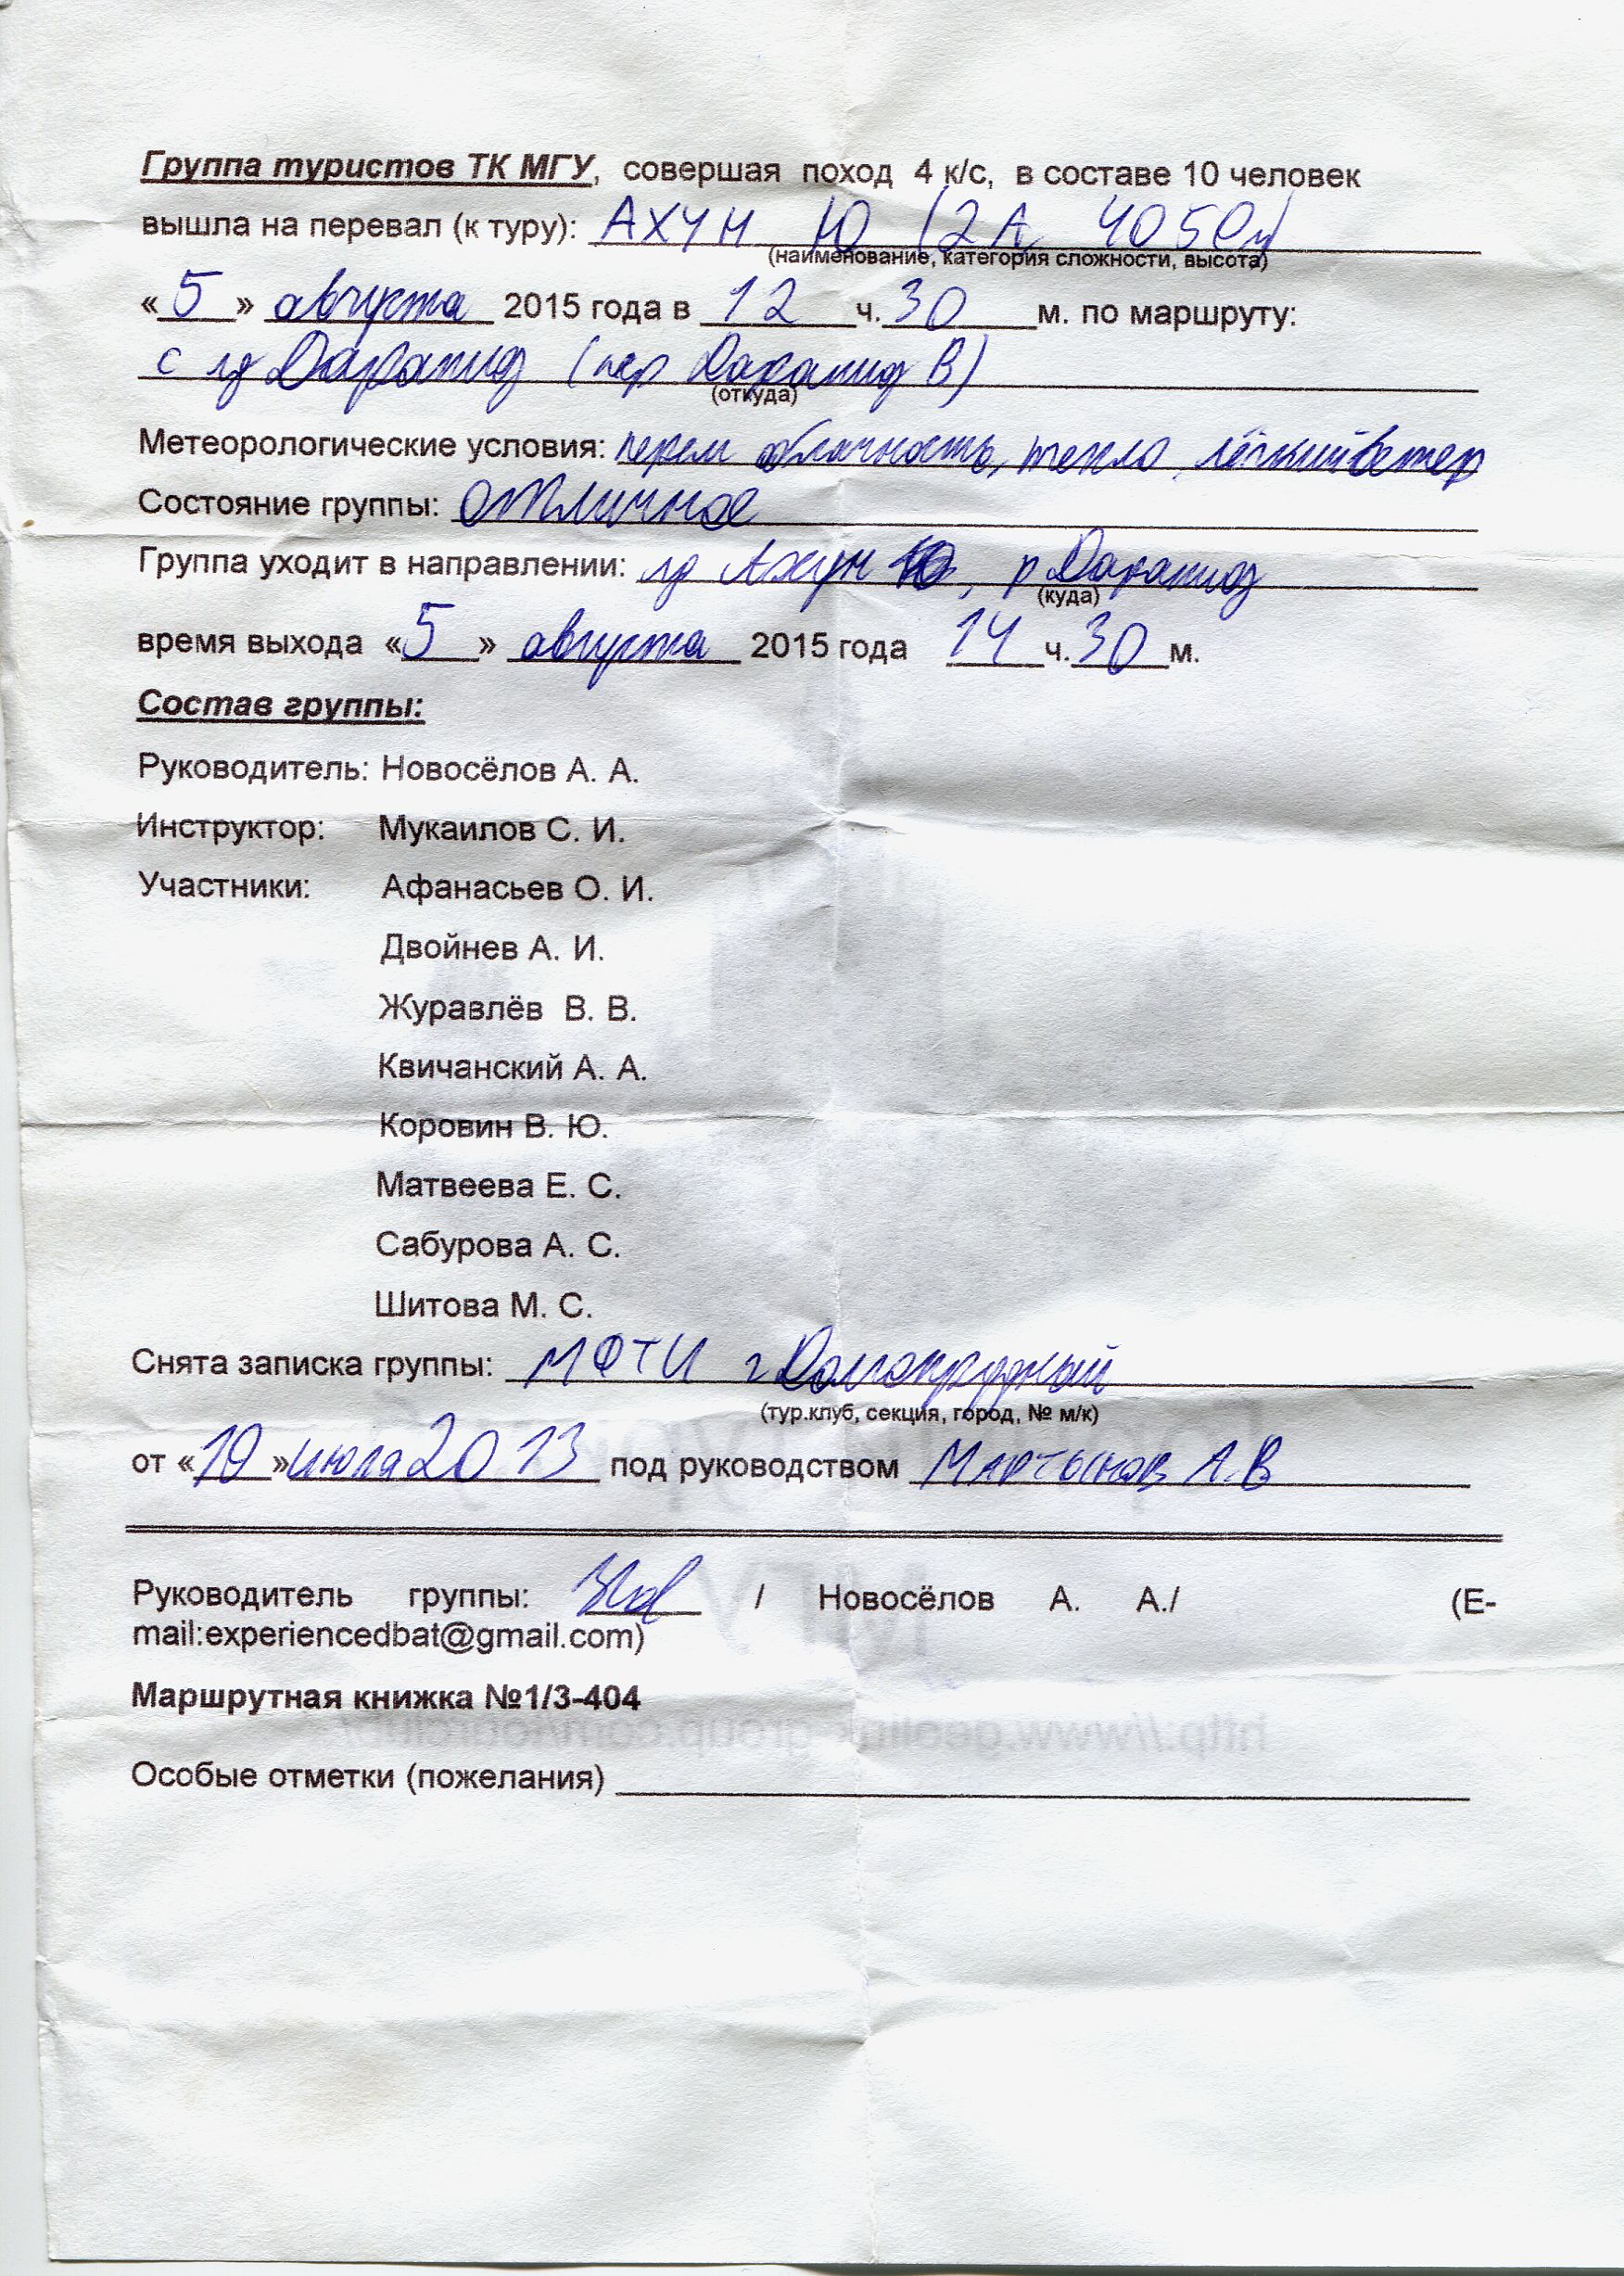 Группа туристов ТК МГУ, совершая поход 4 к/с, в составе 10 человек
вышла на перевал (к туру): АХУН Ю (2А 4050м)
(наименование, категория сложности, высота)
«5» августа 2015 года в 12 ч. 30 м. по маршруту:
с лд Дарапиоз (пер Дарапиоз В)
(откуда)
Метеорологические условия: перем облачность, тепло, лёгкий ветер
Состояние группы: отличное
Группа уходит в направлении: лд Ахун Ю, р Дарапиоз
(куда)
время выхода «5» августа 2015 года 14 ч. 30 м.
Состав группы:
Руководитель: Новосёлов А. А.
Инструктор: Мукаилов С. И.
Участники: Афанасьев О. И.
Двойнев А. И.
Журавлёв В. В.
Квичанский А. А.
Коровин В. Ю.
Матвеева Е. С.
Сабурова А. С.
Шитова М. С.
Снята записка группы: МФТИ г Долгопрудный
(тур.клуб, секция, город, № м/к)
от «19» июля 2013 под руководством Мартынов А.В
Руководитель группы: / Новосёлов А. А./ (E-
mail:experiencedbat@gmail.com)
Маршрутная книжка №1/3-404
http://www.geolink-group.com/tourclub/
Особые отметки (пожелания)